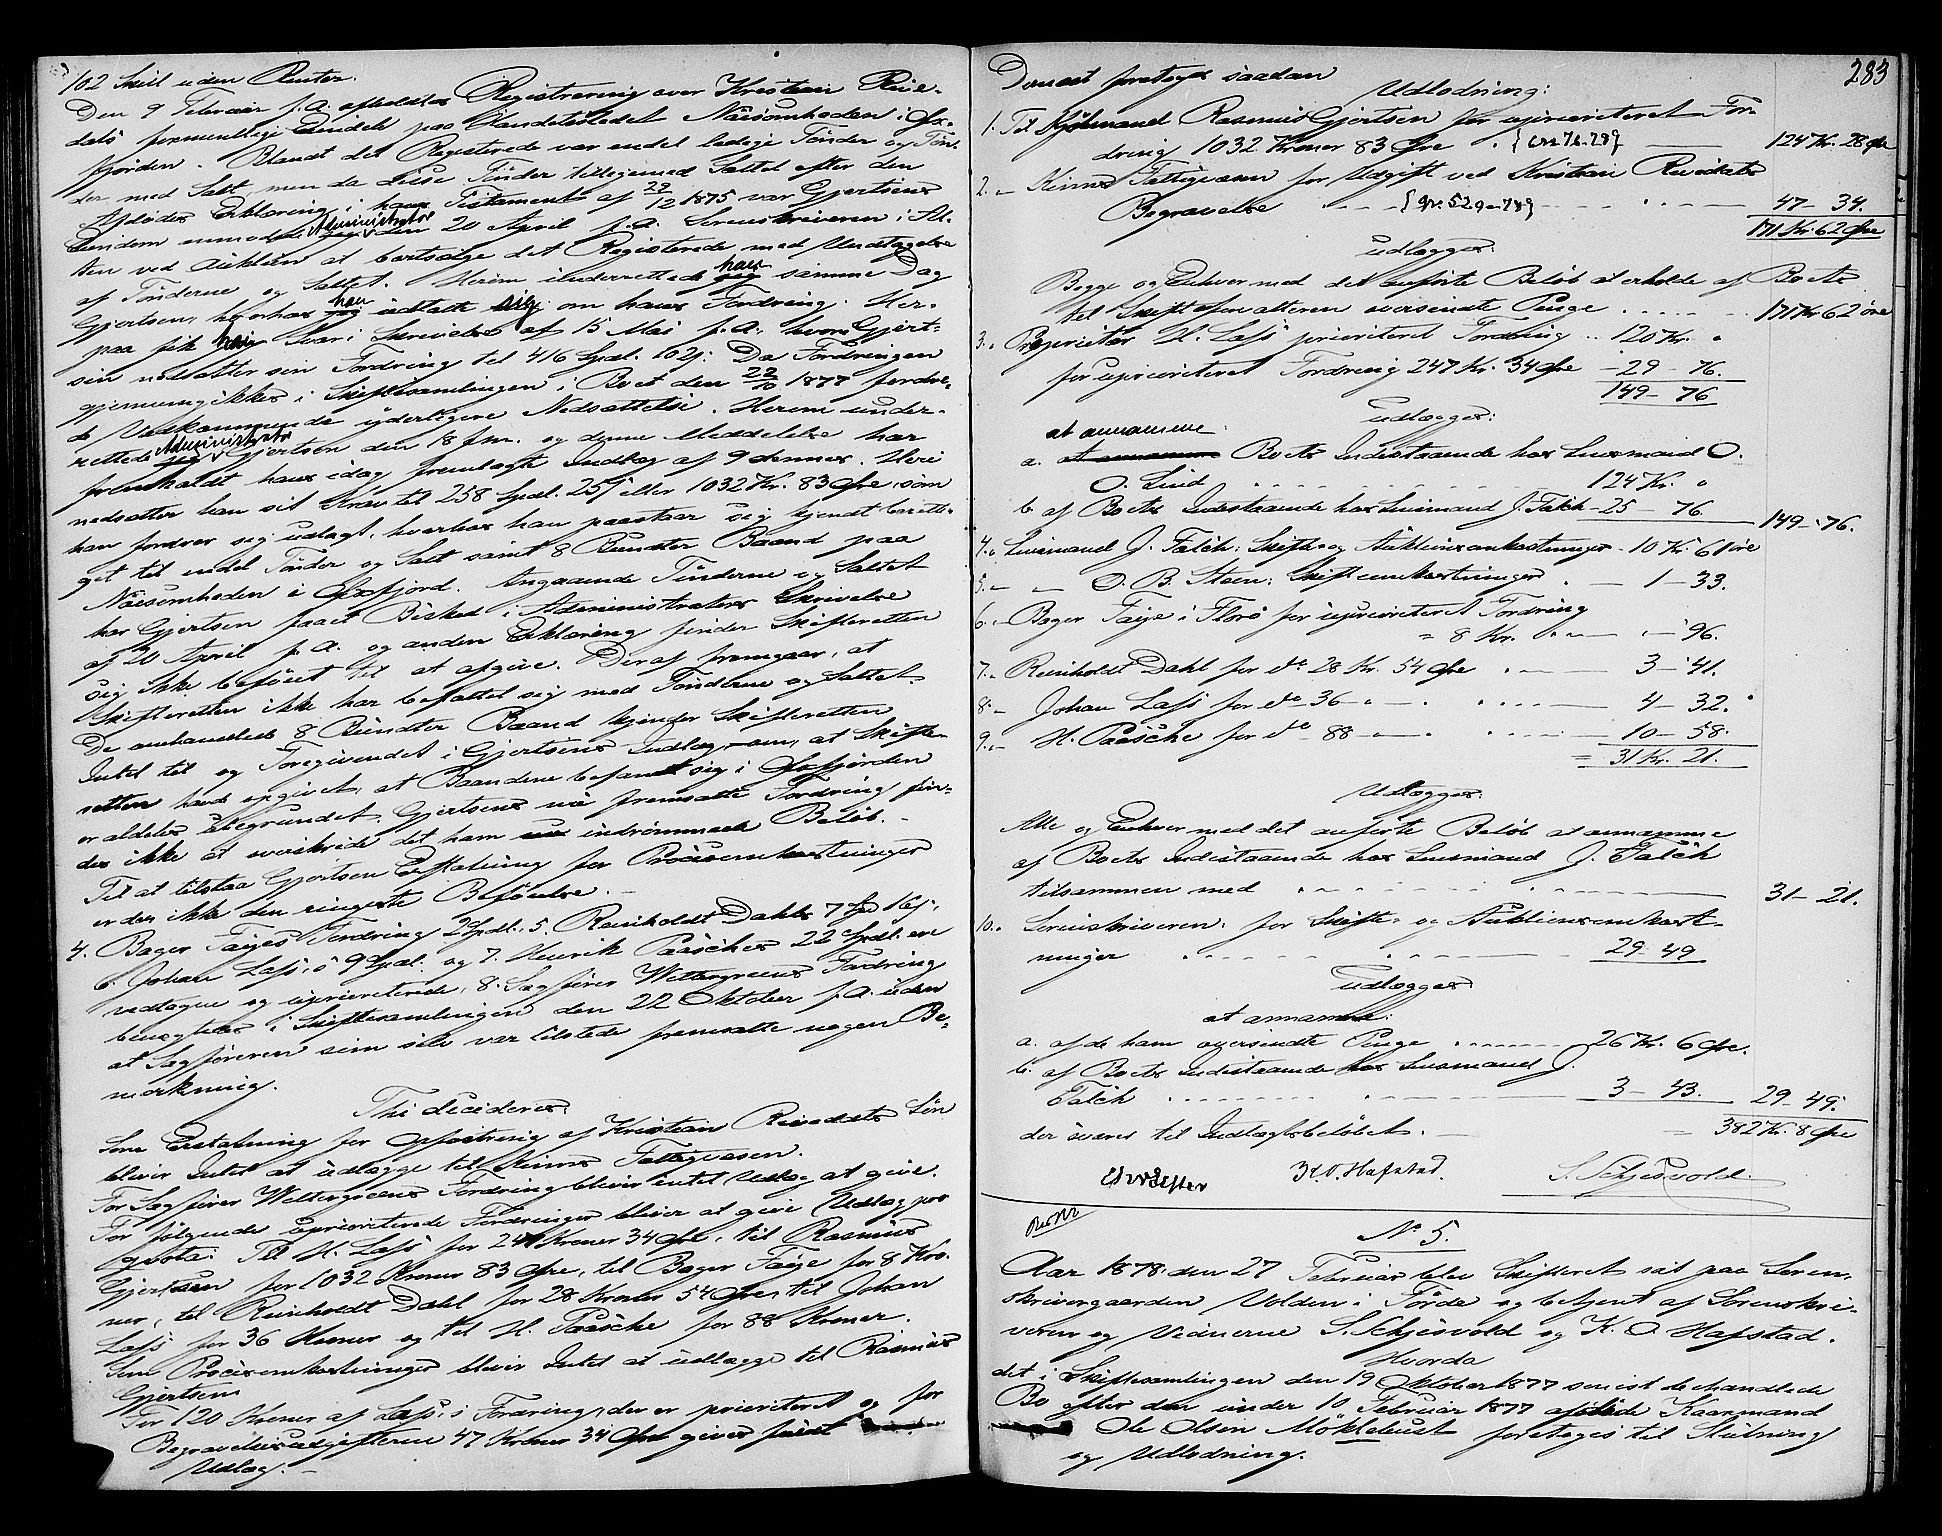 102 Skill uden Renter.
Den 9 Februar f.A. afholdtes Registrering over Kristian Rive-
dals formentlige Eiendele paa Handelsstedet Næisomheden i Øx-
fjorden. Blandt det Registerede var endel ledige Tønder og Tøn-
der med Salt, men da disse Tønder tilligemed Saltet efter den
Afdødes Erklæring i hans Testament af 22/12 1875 var Gjertsens
Eiendom anmodede Administrator den 20 April f.A. Sorenskriveren i Al-
ten ved Auktion at bortsælge det Registerede med Undtagelse
af Tønderne og Saltet. Herom underrettede han samme Dag
Gjertsen, hvorhos han udtalte sig om hans Fordring. Her-
paa fik han Svar i Skrivelse af 15 Mai f.A. hvori Gjert-
sen nedsatter sin Fordring til 416 Spd. 102 s: Da Fordringen
gjennemgikkes i Skiftesamlingen i Boet den 22/10 1877 fordre-
de Vedkommende yderligere Nedsættelse. Herom under-
rettede Administrator Gjertsen den 18 f.m. og denne Meddelelse har
fremkaldt hans idag fremlagte Indlæg af 9 dennes. Heri
nedsatter han sit Krav til 258 Spd. 25 s eller 1032 Kr. 83 Øre som
han fordrer sig udlagt, hvorhos han paastaar sig kjendt beretti-
get til endel Tønder og Salt samt 8 Bundter Baand paa
Næisomheden i Øxfjord. Angaaende Tønderne og Saltet
har Gjertsen faaet Besked i Administrators Skrivelse
af 20 April f.A. og anden Erklæring finder Skifteretten
sig ikke beføiet til at afgive. Deraf fremgaar, at
Skifteretten ikke har befattet sig med Tønderne og Saltet.
De omhandlede 8 Bundter Baand kjender Skifteretten
Intet til og Foregivendet i Gjertsens Indlæg om, at Skifte-
retten havd opgivet, at Baandene befandt sig i Øxfjorden
er aldeles ubegrundet. Gjertsens nu fremsatte Fordring fin-
des ikke at overskride det ham indrømmede Beløb.-
Til at tilstaa Gjertsen Erstatning for Procesomkostninger
er der ikke den ringeste Beføielse.-
4. Bager Faijes Fordring 2 Spdl., 5. Reinholdt Dahls 7 Spd 16 s,
6. Johan Lass's 9 Spdl. og 7. Henrik Paasches 22 Spdl. ere
vedtagne og uprioriterede, 8. Sagfører Wettergreens Fordring
benegtedes i Skiftesamlingen den 22 Oktober f.A. uden
at Sagføreren som selv var tilstede fremsatte nogen Be-
mærkning.
Thi decideres:
Som Erstatning for Opfostring af Kristian Rivedals Søn
bliver Intet at udlægge til Kinns Fattigvæsen.
For Sagfører Wettergreens Fordring bliver intet Udlæg at give.
For følgende uprioriterede Fordringer bliver at give Udlæg pro
qvota: Til H. Lass for 247 Kroner 34 Øre, til Rasmus
Gjertsen for 1032 Kroner 83 Øre, til Bager Faije for 8 Kro-
ner, til Reinholdt Dahl for 28 Kroner 54 Øre, til Johan
Lass for 36 Kroner og til H. Paasche for 88 Kroner.
Som Procesomkostninger bliver Intet at udlægge til Rasmus
Gjertsen
For 120 Kroner af Lass's Fordring, der er prioriteret og for
Begravelsesudgifterne 47 Kroner 34 Øre gives fuldt
Udlæg.-
283
Dernest foretoges saadan
Udlodning:
1. Til Rasmus Gjertsen for uprioriteret For-
dring 1032 Kroner 83 Øre . 124 Kr. 28 Øre
2. " Kinns Fattigvæsen for Udgift ved Kristian Rivedals
Begravelse 47 - 34.
171 Kr. 62 Øre
udlægges:
Begge og Enhver med det anførte Beløb at erholde af Boets
til Skifteforvalteren oversendte Penge 171 Kr 62 øre
3. " Proprietær H. Lass prioriteret Fordring .. 120 Kr. "
for uprioriteret Fordring 247 Kr. 34 Øre - 29 - 76.
149 - 76
udlægges:
at annamme
a. Boets Indestaaende hos Lensmand O.
O. Lind 124 Kr. "
b. af Boets Indestaaende hos Lensmand J. Falch - 25 - 76. 149 - 76.
4. " Lensmand J. Falch: Skifte og Auktionsomkostninger - 10 Kr. 61 øre
5. " " O. B. Steen: Skifteomkostninger - 1 - 33.
6. " Bager Faije i Florø for uprioriteret Fordring
= 8 Kr. " - 96.
7. " Reinholdt Dahl for do 28 Kr. 54 Øre 3 - 41.
8. " Johan Lass for do 36 - " - 4 - 32.
9. " H. Paasche for do 88 - " - 10 - 58.
= 31 Kr. 21.
Udlægges:
Alle og Enhver med det anførte Beløb at annamme
af Boets Indestaaende hos Lensmand J. Falch
tilsammen med 31 - 21.
10. " Sorenskriveren: for Skifte- og Auktionsomkost-
ninger 29 - 49
udlægges
at annamme:
a. af de ham oversendte Penge 26 Kr. 6 Øre.
b. af Boets Indestaaende hos Lensmand J.
Falch 3 - 43. 29 - 49.
der svarer til Indlægsbeløbet. - = 382 Kr. 8 Øre
K. O. Hafstad. S. Schjesvold.
No 5.
Aar 1878 den 27 Februar blev Skifteret sat paa Soren-
skrivergaarden Volden i Førde og betjent af Sorenskri-
veren og Vidnerne S. Schjesvold og K. O Hafstad.
Hvorda
det i Skiftesamlingen den 19 Oktober 1877 senest behandlede
Bo efter den under 10 Februar 1877 afdøde Kaarmand
Ole Olsen Møklebust foretoges til Slutning
og Udlodning.